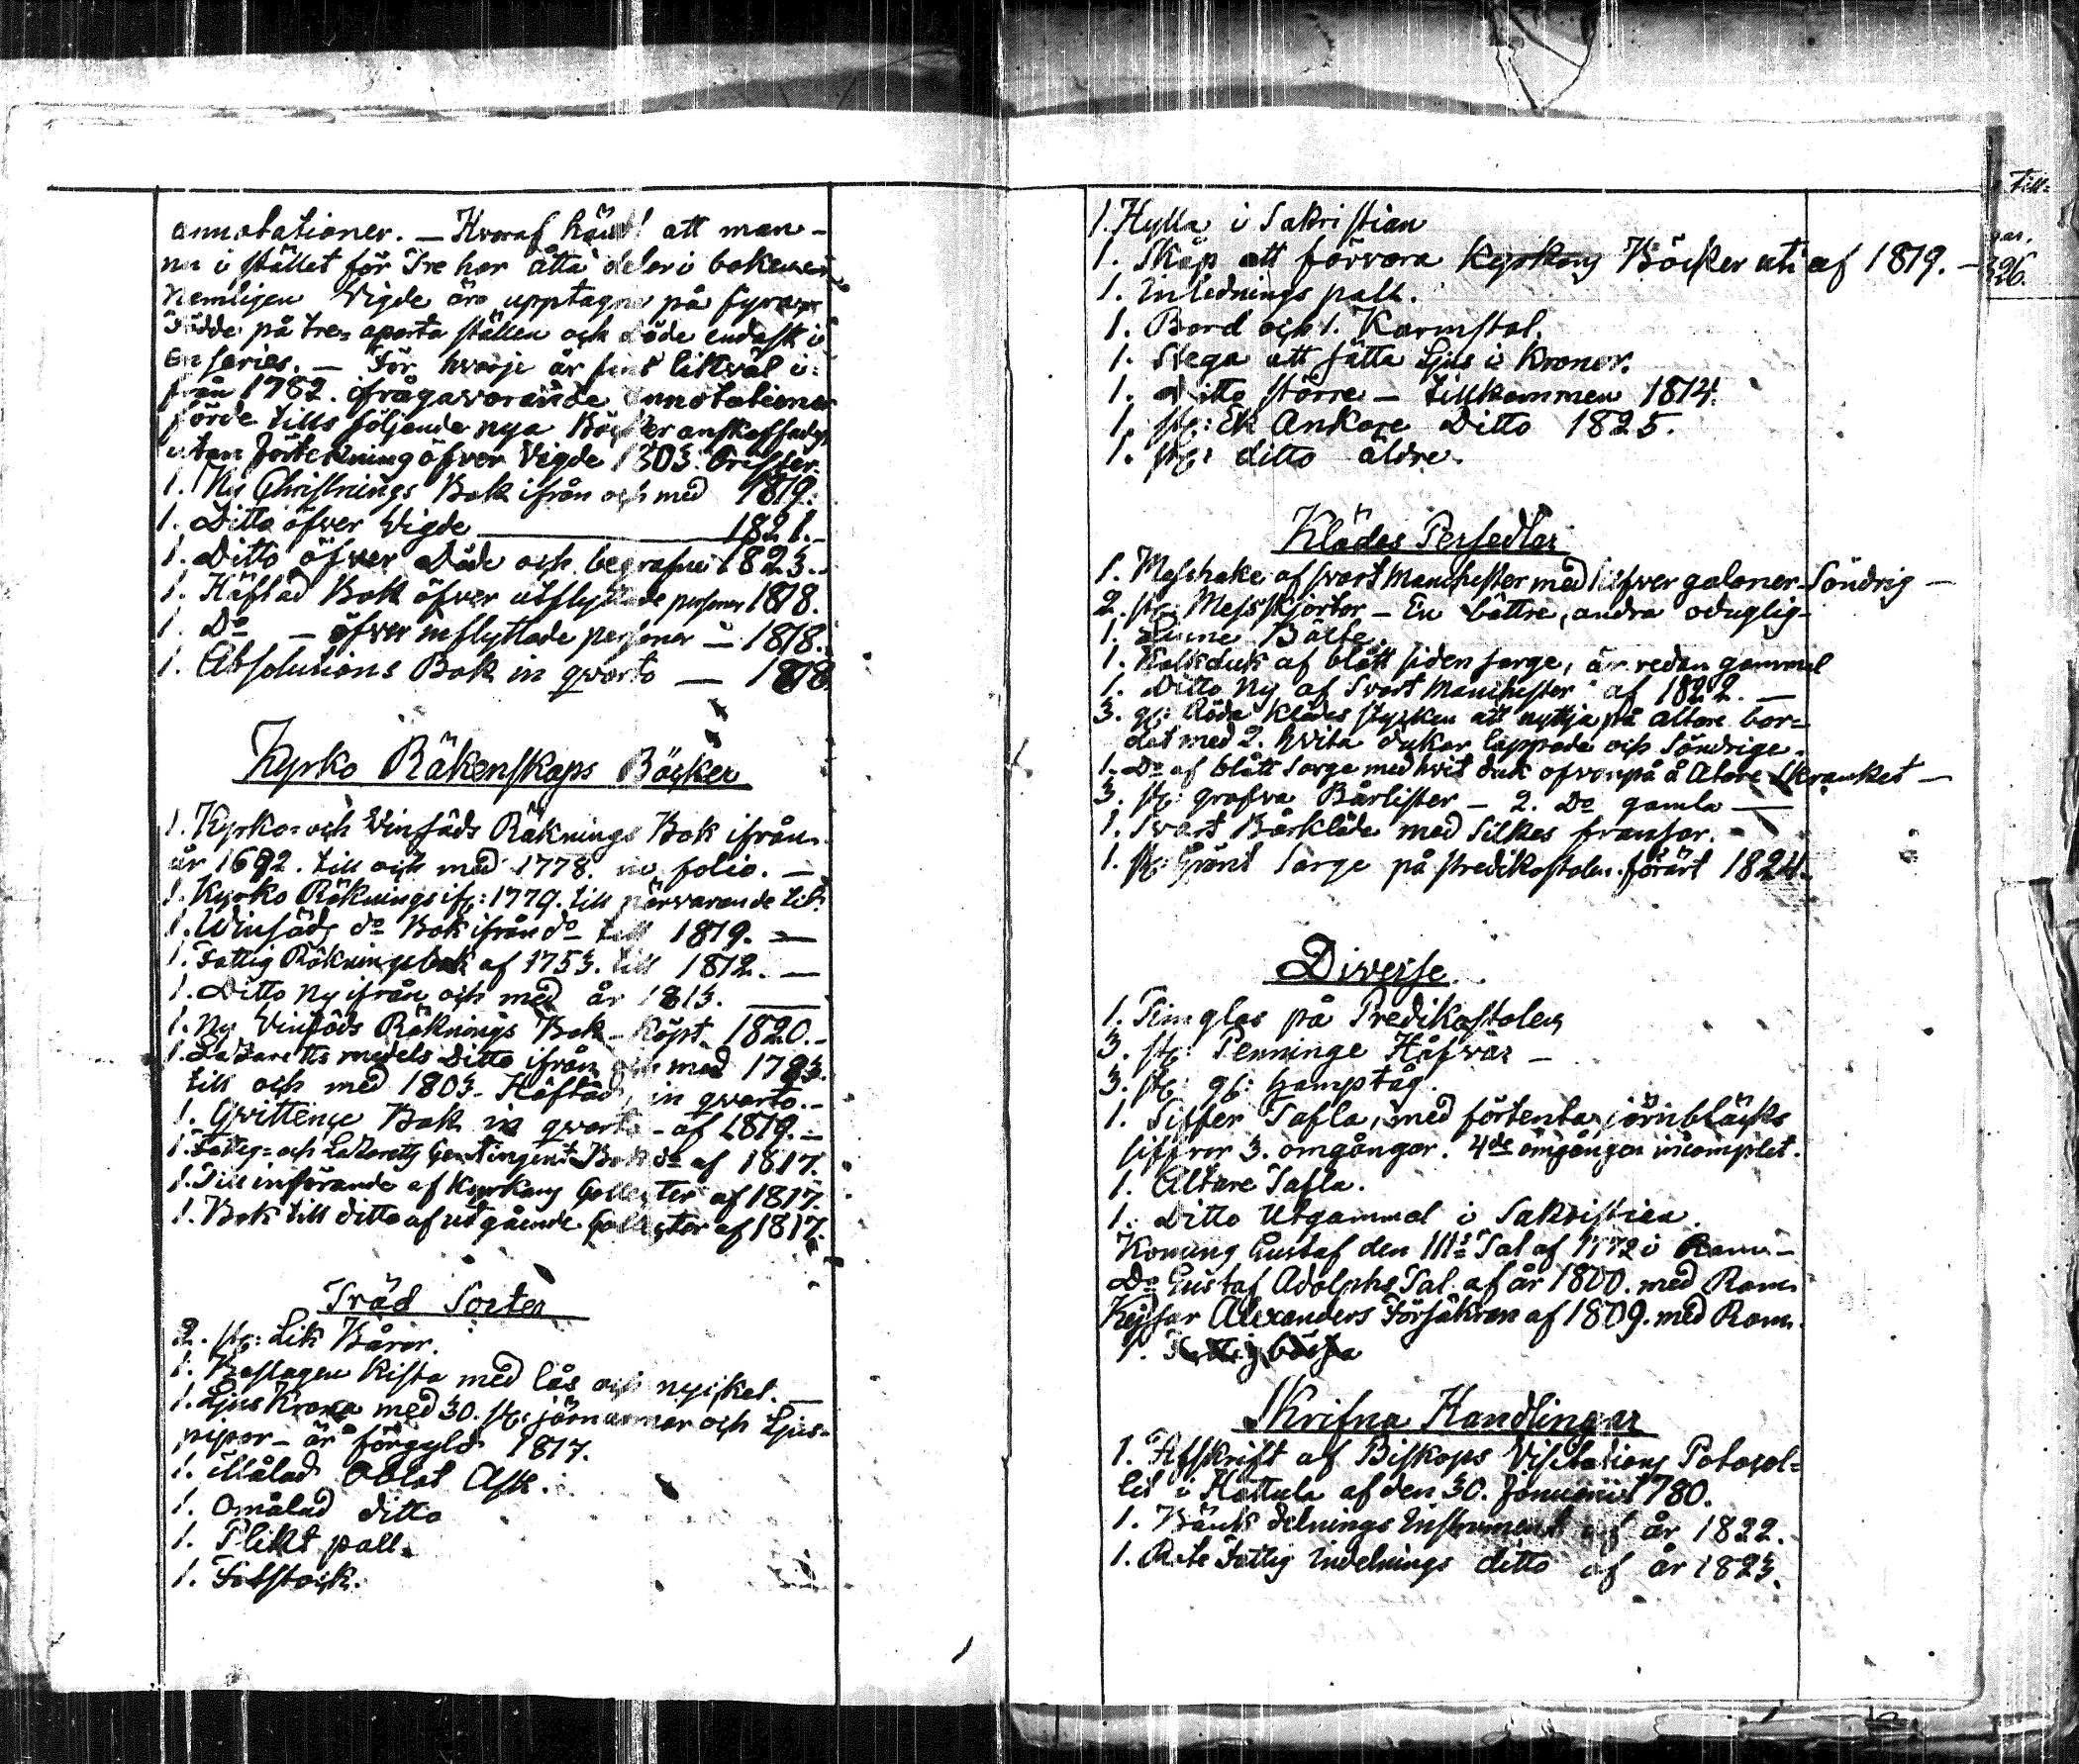 annotationer. — Hvaraf händt att man-
na i stället för Tre har åtta delar i boken
Nemligen Vigde äro upptagne på fyra,
Födde på tre aparta ställen och döde endast i
en series. — För hvarje år fins likväl i-
från 1782. ifrågavarande annotationer
förde tills följande nya Böcker anskaffades
utan förtekning öfver Vigde 1803. brister.
1. Ny Christnings Bok ifrån och med 1819.
1. Ditto öfver Vigde ——— 1821.—
1. Ditto öfver Döde och begrafne 1823.
1. Häftad Bok öfver utflyttade personer 1818.
1. Do — öfver inflyttade personer — 1818.
1. Absolutions Bok in qvarto — 1818
Kyrko Räkenskaps Böcker
1. Kyrko- och Vinsäds Räknings Bok ifrån
år 1692. till och med 1778. in folio. —
1. Kyrko Räknings if: 1779. till närvarande tid.
1. Winsäds do Bok ifrån do till 1819. —
1. Fattig Räkningsbok af 1753. till 1812. —
1. Ditto Ny ifrån och med år 1813. —
1. Ny Vinsäds Räknings Bok - köpt 1820.-
1. Lazaretts medels Ditto ifrån och med 1783.
till och med 1803. Häftad, in qvarto.-
1. Qvittence Bok in qvarto - af 1819. —
1. Fattig- och Lazaretts Contingent Bok do af 1817.
1. Till införande af Kyrkans Collecter af 1817.
1. Bok till ditto af utgående Collecter af 1817.
Träd Sorter
2. st: Lik Bårar.
1. Beslagen Kista med lås och nyckel. —
1. Ljus Krona med 30. st: järn armar och Ljus-
pipor - är förgyld 1817.
1. Målad Oblat Ask.
1. Omålad ditto
1. Plikt pall.
1. Fotstock.
1. Hylla i Sakristian
1. Skåp att förvara Kyrkans Böcker uti af 1819. —
1. Inlednings pall.
1. Bord och 1. Karmstol.
1. Stega att sätta Ljus i Kronor.
1. Ditto större — tillkommen 1814.
1. st: Ek Ankare Ditto 1825.
1. st: ditto äldre.
Klädes Persedlar
1. Messhake af svart Manchester med silfver galoner. Söndrig —
2. st: Messskjortor — En bättre, andra oduglig-
1. Linne Bälte.
1. Kalkduk af blått siden sarge, är redan gammal
1. Ditto Ny af Svart Manchester af 1822. —
3. gl: Röda Klädes stycken att nyttja på Altare bor-
det med 2. hvita dukar lappade och söndrige.
1. Do af blått Sarge med hvit duk ofvanpå å Altare Skranket —
3. st: grofva Bårlister — 2. Do gamla —
1. Svart Bårkläde med Silkes fransar.
1. st: Grönt Sarge på Predikostolen förärt 1824.
Diverse
1. Timglas på Predikostolen
3. st: Penninge Håfvar —
3. st: gl: hamptåg.
1. Siffer Tafla, med förtenta järnbläcks
siffror 3. omgångor. 4de omgången incomplet.
1. Altare Tafla.
1. Ditto Utgammal i Sakristian.
Konung Gustaf den III:s Tal af 1772 i Ram. —
Do Gustaf Adolphs Tal af år 1800. med Ram.
Kejsar Alexanders Försäkran af 1809. med Ram.
1. Fattigbössa
Skrifna Handlingar
1. Afskrift af Biskops Visitations Potocol-
let i Hattula af den 30. Januarii 1780.
1. Bänk delnings Instrument af år 1822.
1. Rote Fattig Indelnings ditto af år 1823.
Till-